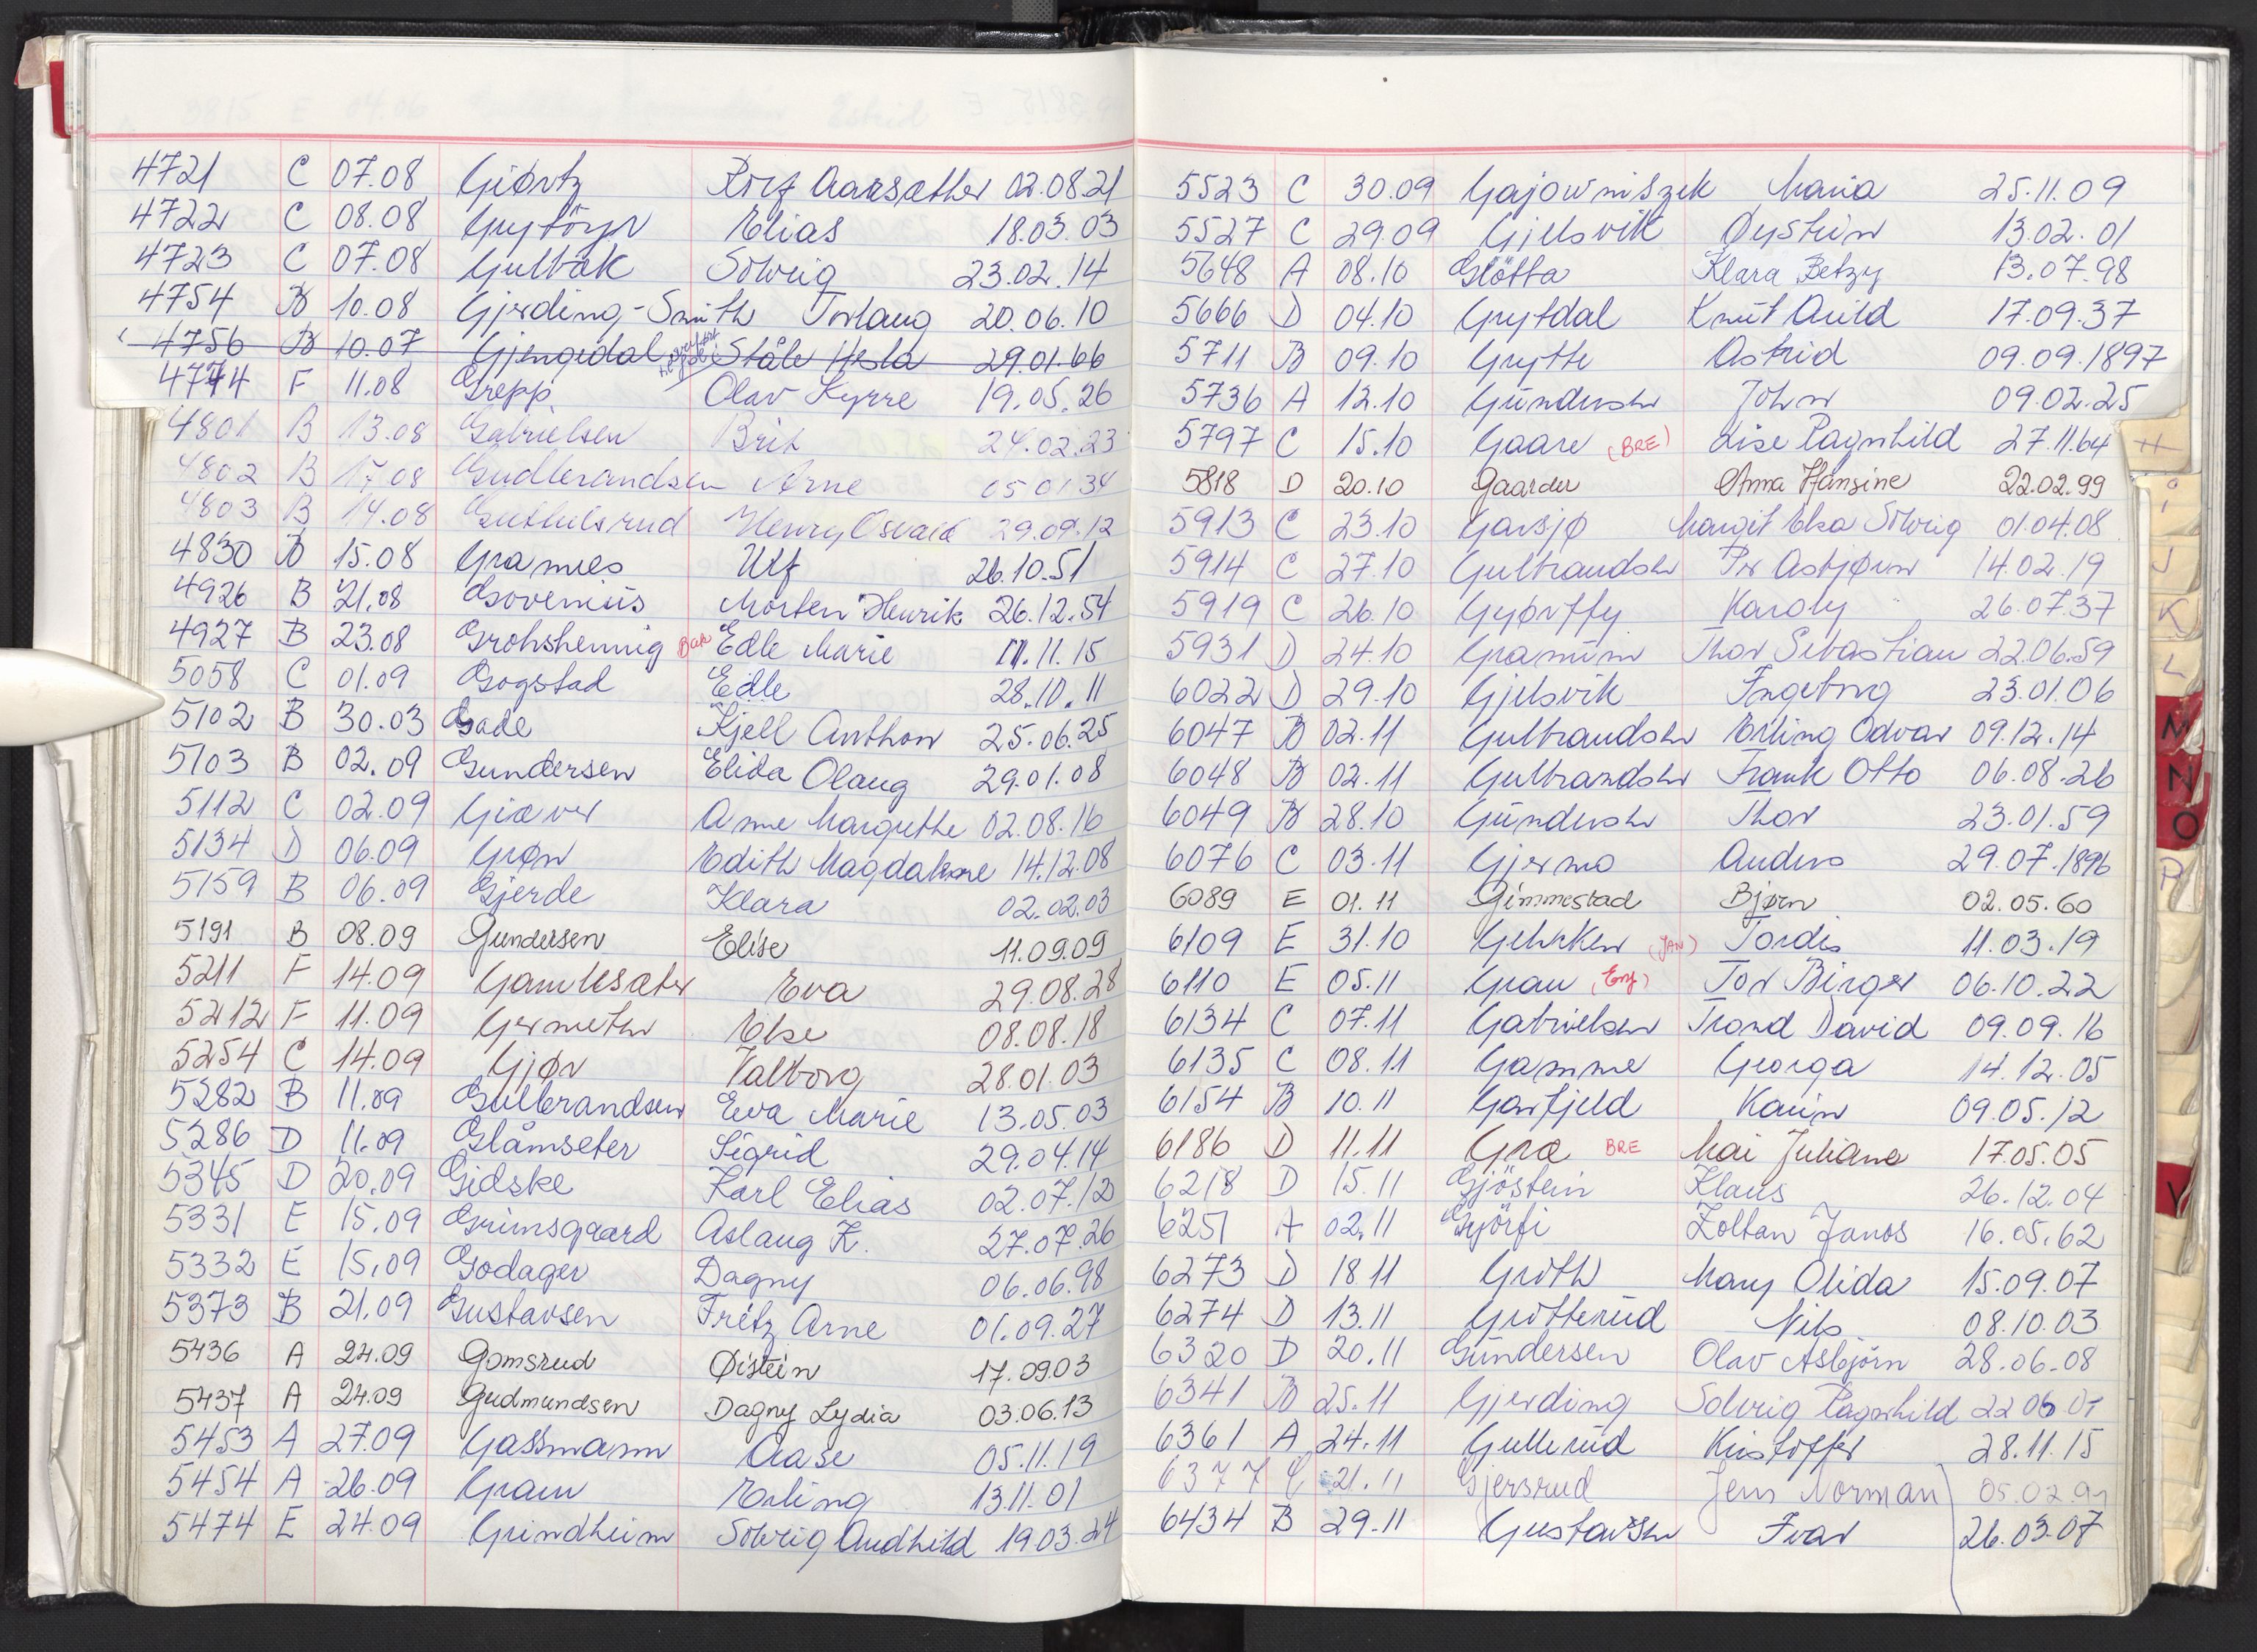 4721 C 07.08 Giørtz Rolf Aarsæther 02.08.21
4722 C 08.08 Grytöyr Elias 18.03.03
4723 C 07.08 Gulbäk Solveig 23.02.14
4754 B 10.08 Gjerding-Smith Torlaug 20.06.10
4756 B 10.07 Gjengedal Ståle Hesla 29.01.66
4744 F 11.08 Grepp Olav Kyrre 19.05.26
4801 B 13.08 Gabrielsen Brit 24.02.23
4802 B 17.08 Gudbrandsen Arne 05 01 34
4803 B 14.08 Guthulsrud Henry Osvald 29.09.12
4830 B 15.08 Gramnes Ulf 26.10.51
4926 B 21.08 Govenius Morten Henrik 26.12.54
4927 B 23.08 Grohshennig Bak Edle Marie 11.11.15
5058 C 01.09 Gogstad Edle 28.10.11
5102 B 30.03 Gade Kjell Anthon 25.06.25
5103 B 02.09 Gundersen Elida Olaug 29.01.08
5112 C 02.09 Giæver Anne Margrethe 02.08.16
5134 D 06.09 Grøn Edith Magdalene 14.12.08
5159 B 06.09 Gjerde Klara 02.02.03
5191 B 08.09 Gundersen Elise 11.09.09
5211 F 14.09 Gamlesæter Eva 29.08.28
5212 F 11.09 Germeten Else 08.08.18
5254 C 14.09 Gjør Valborg 28.01.03
5282 B 11.09 Gulbrandsen Eva Marie 13.05.03
5286 D 11.09 Glåmseter Sigrid 29.04.14
5345 D 20.09 Gidske Karl Elias 02.07.12
5331 E 15.09 Grimsgaard Aslaug K. 27.07.26
5332 E 15.09 Godager Dagny 06.06.98
5373 B 21.09 Gustavsen Fritz Arne 01.09.27
5436 A 24.09 Gomsrud Øistein 17.09.03
5437 A 24.09 Gudmundsen Dagny Lydia 03.06.13
5453 A 27.09 Gassmann Aase 05.11.19
5454 A 26.09 Gram Erling 13.11.01
5474 E 24.09 Grindheim Solveig Audhild 19.03.24
5523 C 30.09 Gajowniszek Maria 25.11.09
5527 C 29.09 Gjelsvik Øystein 13.02.01
5648 A 08.10 Glötta Klara Betzy 13.07.98
5666 D 04.10 Grytdal Knut Arild 17.09.37
5711 B 09.10 Grytte Astrid 09.09.1897
5736 A 12.10 Gundersen John 09.02.25
5797 C 15.10 Gaare (BRE) Lise Ragnhild 27.11.64
5818 D 20.10 Gaarder Anna Hansine 22.02.99
5913 C 23.10 Garsjø Margit Elea Solveig 01.04.08
5914 C 27.10 Gulbrandsen Per Asbjørn 14.02.19
5919 C 26.10 Gyørffy Karoly 26.07.37
5931 D 24.10 Gramum Thor Sebastian 22.06.59
6022 D 29.10 Gjelsvik Ingebrg 23.01.06
6047 B 02.11 Gulbrandsen Erling Odvar 09.12.14
6048 B 02.11 Gulbrandsen Frank Otto 06.08.26
6049 B 28.10 Gundersen Thor 23.01.59
6076 C 03.11 Gjermo Anders 29.07.1896
6089 E 01.11 Gimmestad Bjørn 02.05.60
6109 E 31.10 Gehrken (JAN) Tordis 11.03.19
6110 E 05.11 Grau (Eng) Tor Birger 06.10.22
6134 C 07.11 Gabrielsen Trond David 09.09.16
6135 C 08.11 Gamme Georga 14.12.05
6154 B 10.11 Garfjeld Karin 09.05.12
6186 D 11.11 Græ BRE Mai Juliane 17.05.05
6218 D 15.11 Gjöstein Klaus 26.12.04
6251 A 02.11 Györfi Zoltan Janos 16.05.62
6273 D 18.11 Groth Mary Olida 15.09.07
6274 D 13.11 Grotterud Nils 08.10.03
6320 D 20.11 Gundersen Olav Asbjörn 28.06.08
6341 B 25.11 Gjerding Solveig Ragnhild 22 06 01
6361 A 24.11 Gullerud Kristoffer 28.11.15
6377 C 21.11 Gjersrud Jens Norman 05.02.91
6434 B 29.11 Gustavsen Ivar 26.03.07
H
i
J
K
L
M
N
O
P
V